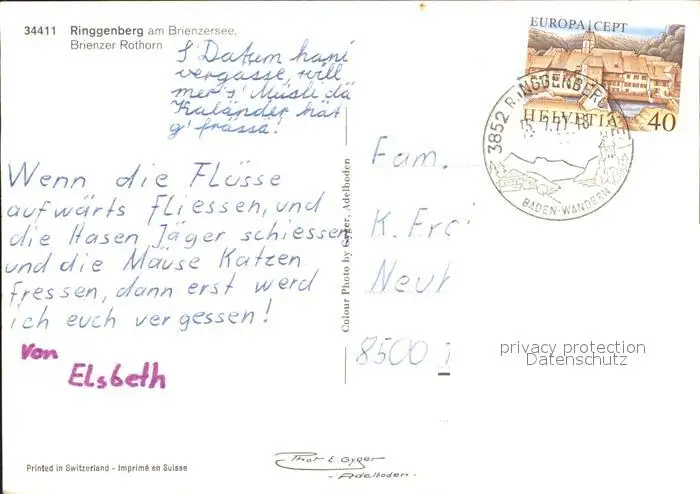 34411 Ringgenberg am Brienzersee,
Brienzer Rothorn
S'Datum hani
vergässe, will
mer s' Müsli dä
Kaländer hät
g' frässa!
Wenn die Flüsse
aufwärts fliessen, und
die Hasen Jäger schiessen
und die Mäuse Katzen
fressen, dann erst werd
ich euch vergessen!
Von
Elsbeth
Printed in Switzerland - Imprimé en Suisse
Colour Photo by Gyger, Adelboden
Phot E. Gyger
- Adelboden -
EUROPA CEPT
HELVETIA 40
3852 RINGGENBERG
BADEN-WANDERN
Fam.
K.
8500
privacy protection
Datenschutz